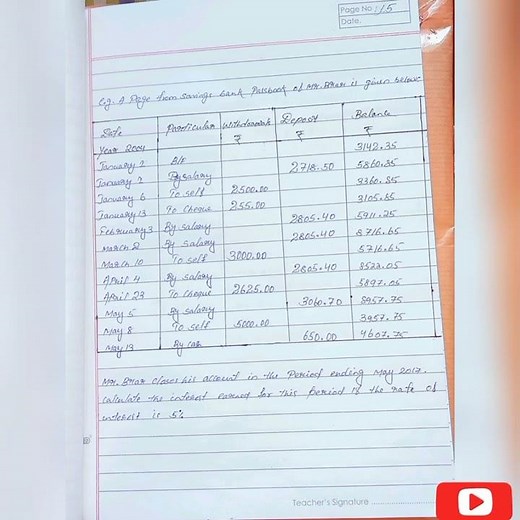 Page No. 115
Date.
Eg. A Page from Savings bank Passbook of Mr. Brar is given below
Date Particular Withdrawals ₹ Deposit ₹ Balance ₹
Year 2004
January 2 B/F 3142.35
January 3 By salary 2718.50 5860.35
January 6 To self 2500.00 3360.85
January 13 To Cheque 255.00 3105.85
February 3 By salary 2805.40 5911.25
March 2 By salary 2805.40 8716.65
March 10 To self 3000.00 5716.65
April 4 By salary 2805.40 8522.05
April 23 To Cheque 2625.00 5897.05
May 5 By salary 3060.70 8957.75
May 8 To self 5000.00 3957.75
May 13 By cash 650.00 4607.75
Mr. Brar closes his account in the Period ending May 2017.
calculate the interest earned for this Period if the rate of
interest is 5%
Teacher's Signature